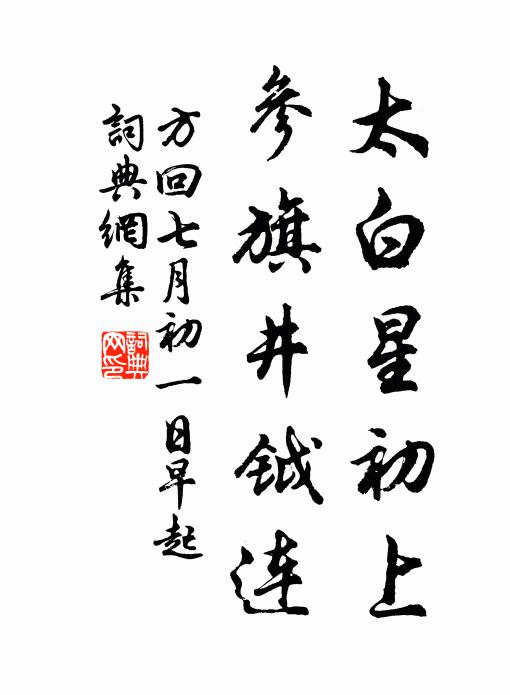 太白星初上
參旗井鉞連
方回七月初一日早起
詞典網集
詞典網印